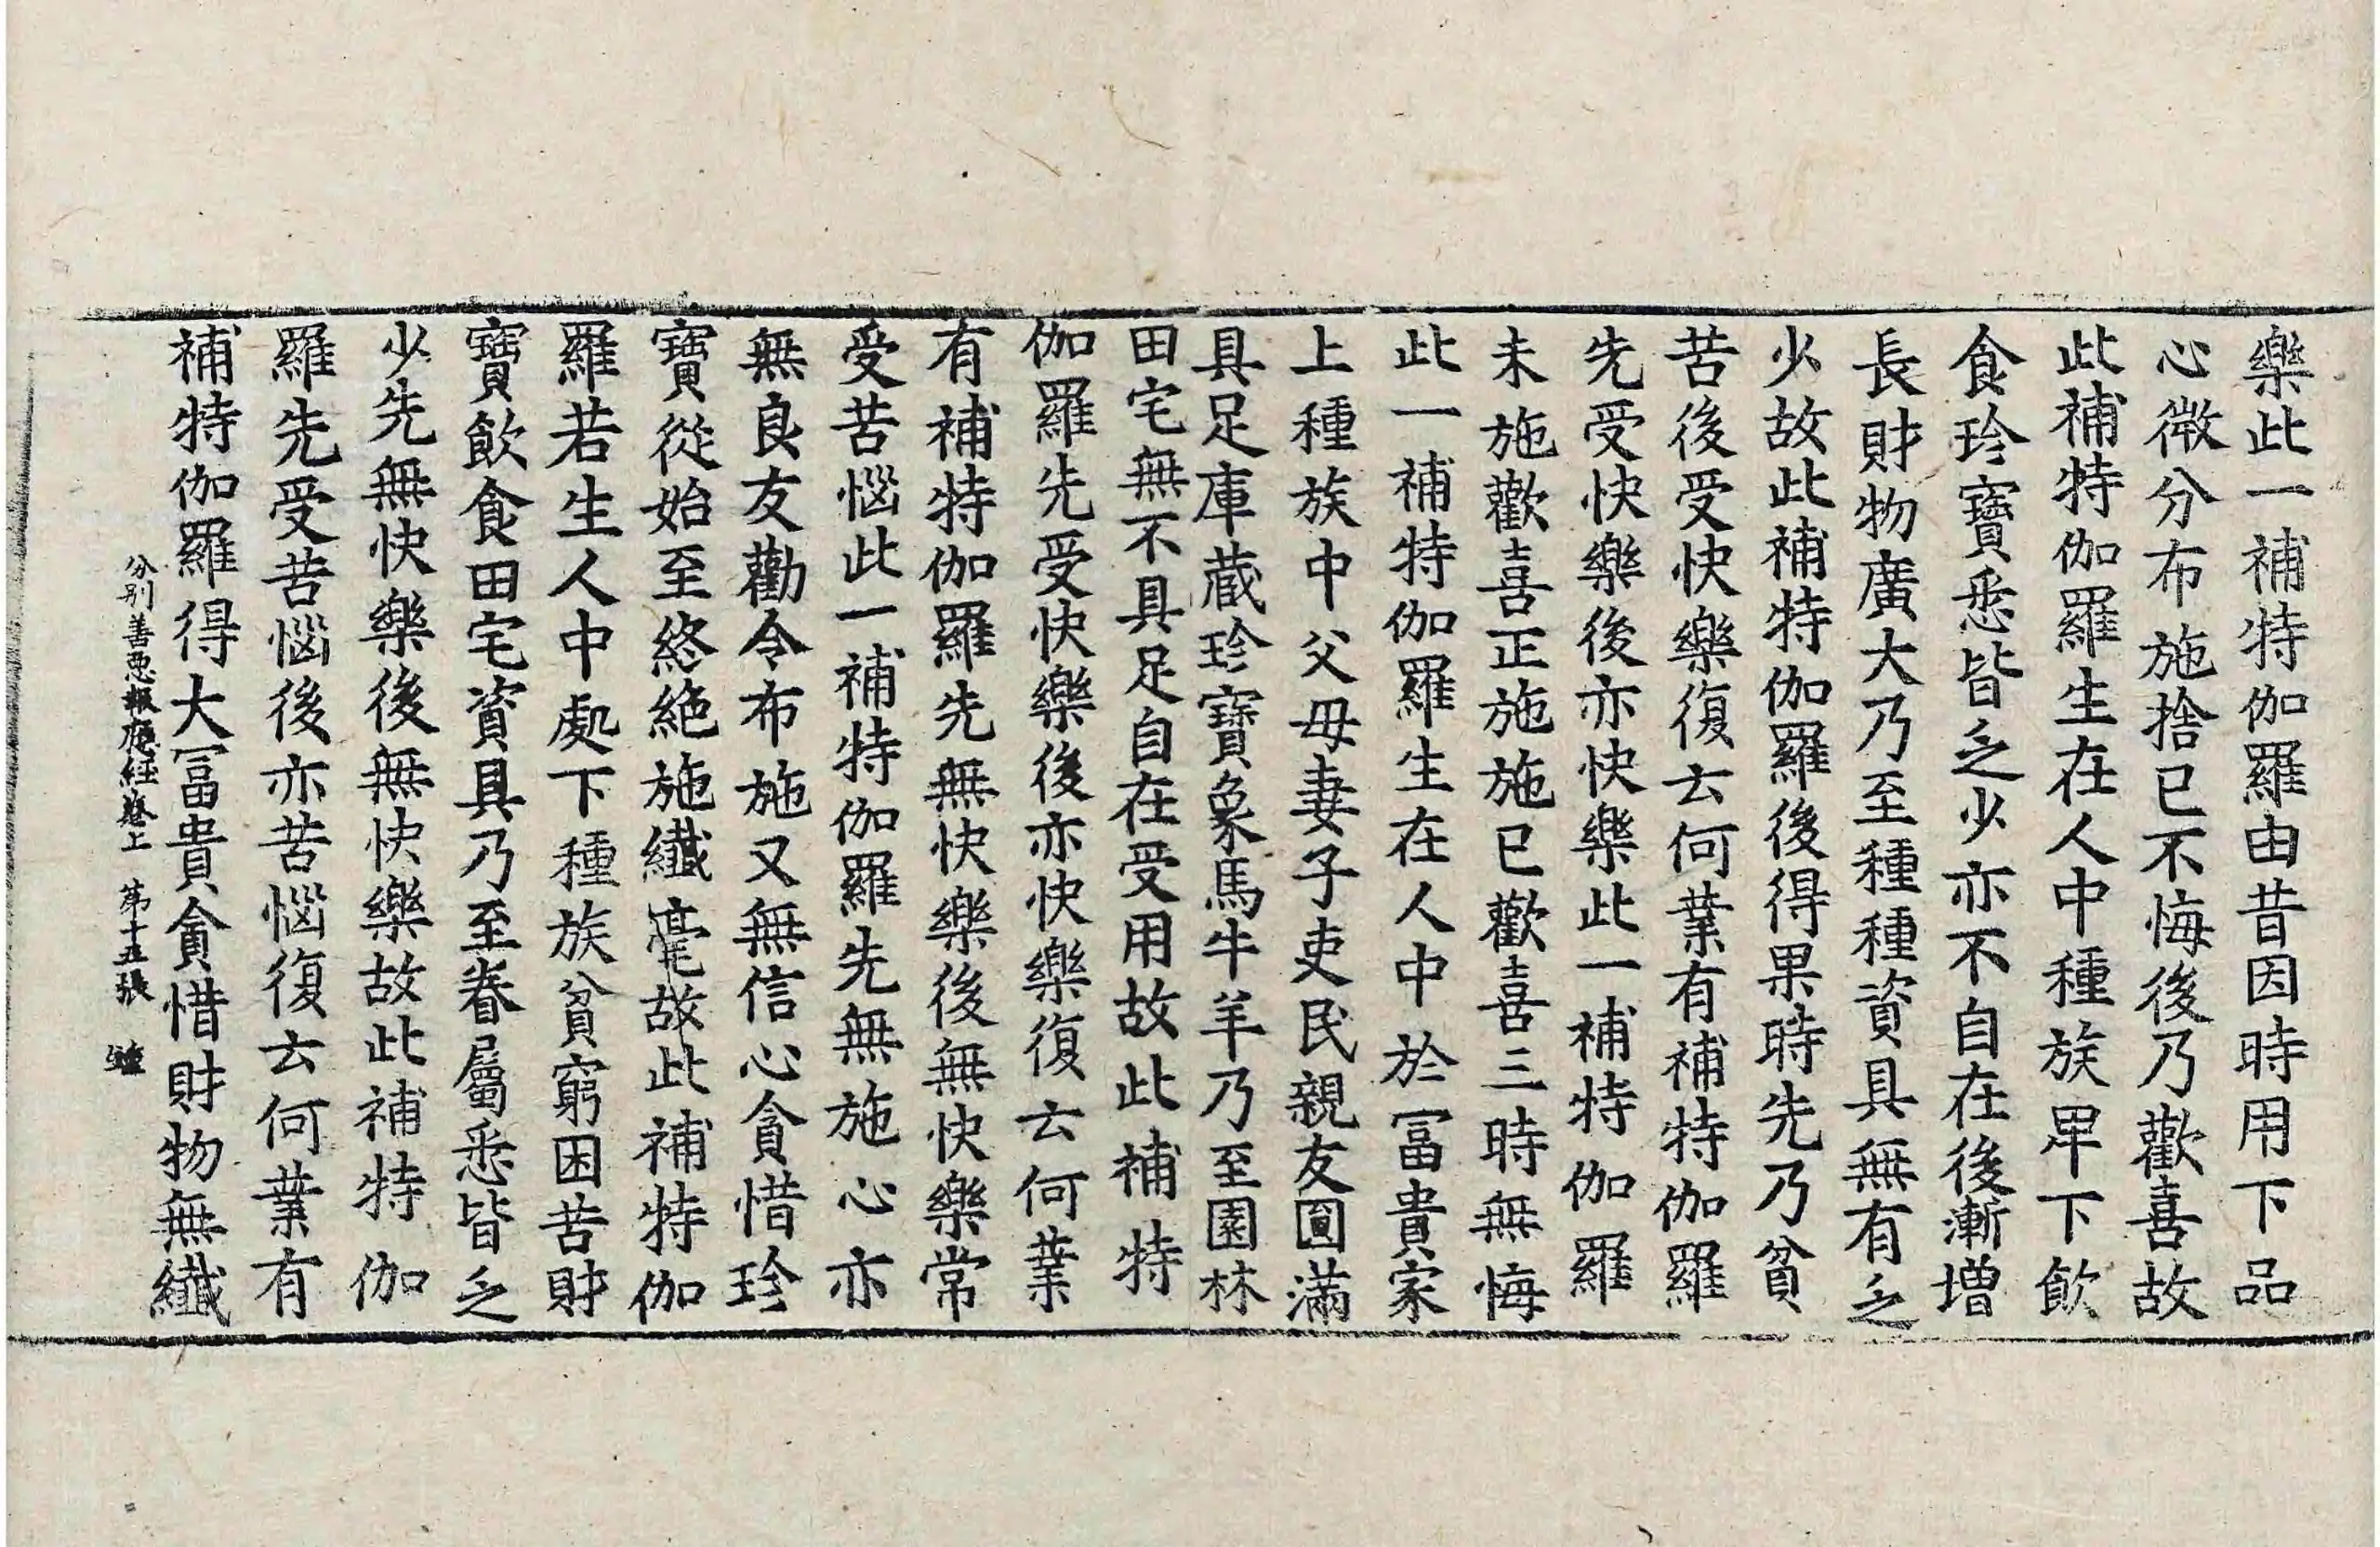 樂此一補特伽羅由昔因時用下品
心微分布施捨已不悔後乃歡喜故
此補特伽羅生在人中種族卑下飲
食珍寶悉皆乏少亦不自在後漸增
長財物廣大乃至種種資具無有乏
少故此補特伽羅後得果時先乃貧
苦後受快樂復云何業有補特伽羅
先受快樂後亦快樂此一補特伽羅
未施歡喜正施施已歡喜三時無悔
此一補特伽羅生在人中於冨貴家
上種族中父母妻子吏民親友圓滿
具足庫藏珍寶象馬牛羊乃至園林
田宅無不具足自在受用故此補特
伽羅先受快樂後亦快樂復云何業
有補特伽羅先無快樂後無快樂常
受苦惱此一補特伽羅先無施心亦
無良友勸令布施又無信心貪惜珍
寶從始至終絶施纖毫故此補特伽
羅若生人中處下種族貧窮困苦財
寶飲食田宅資具乃至眷屬悉皆乏
少先無快樂後無快樂故此補特伽
羅先受苦惱後亦苦惱復云何業有
補特伽羅得大冨貴貪惜財物無纖
分別善惡報應經卷上 第十五張